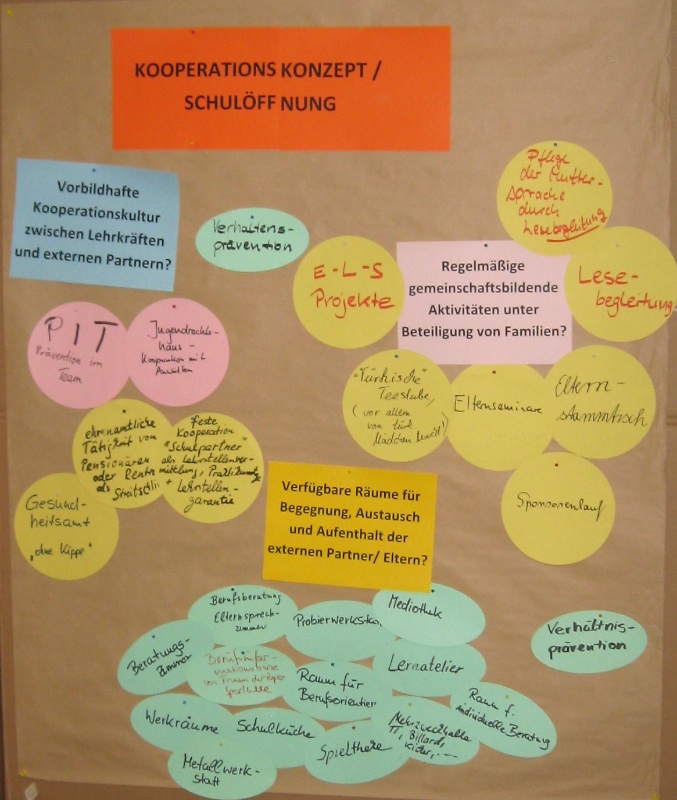 KOOPERATIONS KONZEPT /
SCHULÖFF NUNG
Vorbildhafte
Kooperationskultur
zwischen Lehrkräften
und externen Partnern?
Verhaltens-
prävention
Pflege
der Mutter-
sprache
durch
Lesebegleitung
E-L-S
Projekte
Regelmäßige
gemeinschaftsbildende
Aktivitäten unter
Beteiligung von Familien?
Lese-
begleitung
PIT
Prävention im
Team
Jugendrechts-
haus -
Kooperation mit
Anwälten
"Türkische"
Teestube
(vor allem
von türk.
Mädchen
Elternseminare
Eltern-
stammtisch
ehrenamtliche
Tätigkeit von
Pensionären
oder Rentn
als
feste
Kooperation
"Schulpartner"
als Lehrstellenver-
mittlung,
+ Lehrstellen-
garantie
Gesund-
heitsamt
"ohne Kippe"
Verfügbare Räume für
Begegnung, Austausch
und Aufenthalt der
externen Partner/ Eltern?
Sponsorenlauf
Berufsberatung
Elternsprech-
zimmer
Probierwerksta
Mediothek
Verhältnis-
prävention
Beratungs-
zimmer
Berufsinfor-
von
Sporthalle
Raum für
Berufsorientier
Lernatelier
Raum f.
individuelle Beratung
Werkräume
Schulküche
Spieltheke
Mehrzweckhalle
TT, Billard,
Kicker, ...
Metallwerk-
statt